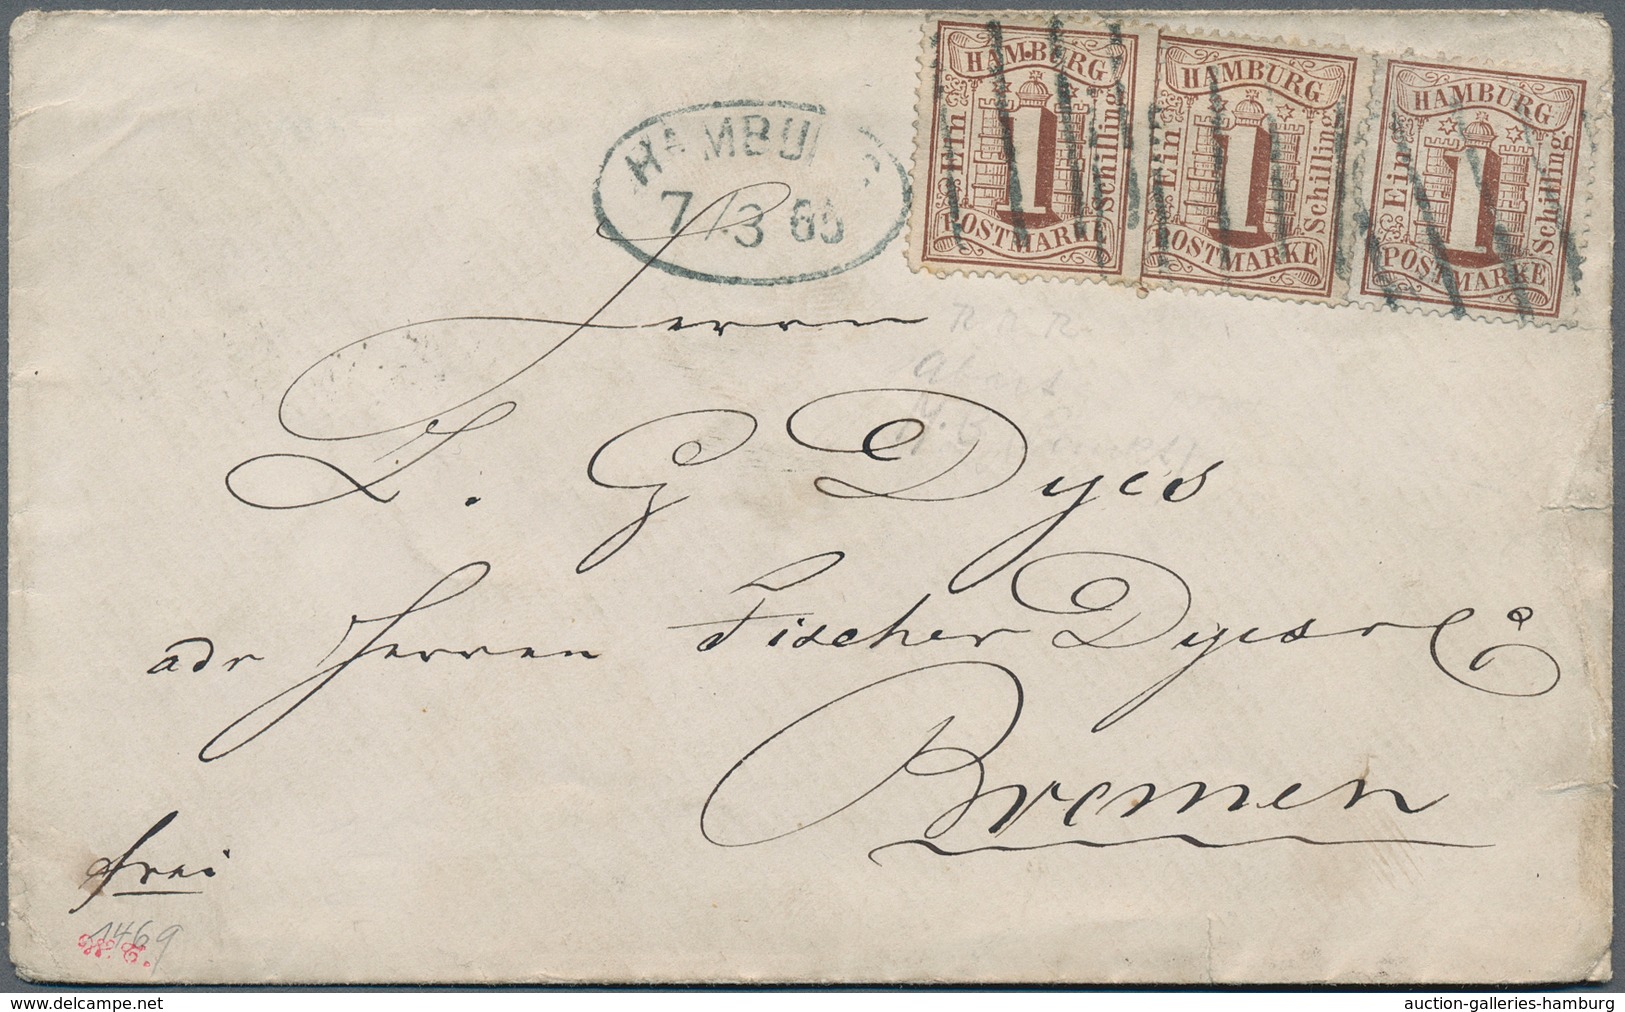 HAMBURG
7/3 65
HAMBURG
Ein
1
Schilling
POSTMARKE
HAMBURG
Ein
1
Schilling
POSTMARKE
HAMBURG
Ein
1
Schilling
POSTMARKE
Herrn
L. G Dyes
adr Herren Fischer Dyes & Co
Bremen
frei
1469
www.delcampe.net
auction-galleries-hamburg